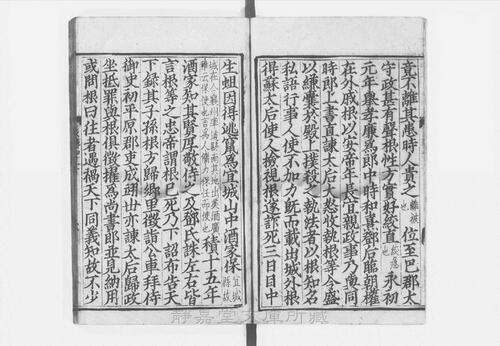 竟不離其患時人貴之離被也位至巴郡太
守政甚有聲根性方實好絞直絞急也永初
元年舉孝廉爲郎中時和熹鄧后臨朝權
在外戚根以安帝年長宜親政事乃與同
時郎上書直諫太后大怒收執根等令盛
以縑囊於殿上撲殺之執法者以根知名
私語行事人使不加力既而載出城外根
得蘇太后使人檢視根遂詐死三日目中
生蛆因得逃竄爲宜城山中酒家保宜城縣故
城在今襄州率道縣南其地出美酒廣雅云保使也言爲人傭力保任而使也積十五年
酒家知其賢厚敬待之及鄧氏誅左右皆
言根等之忠帝謂根已死乃下詔布告天
下錄其子孫根方歸鄉里徵詣公車拜侍
御史初平原郡吏成翊世亦諫太后歸政
坐抵罪與根俱徵擢爲尚書郎並見納用
或問根曰往者遇禍天下同義知故不少
靜嘉堂文庫所藏